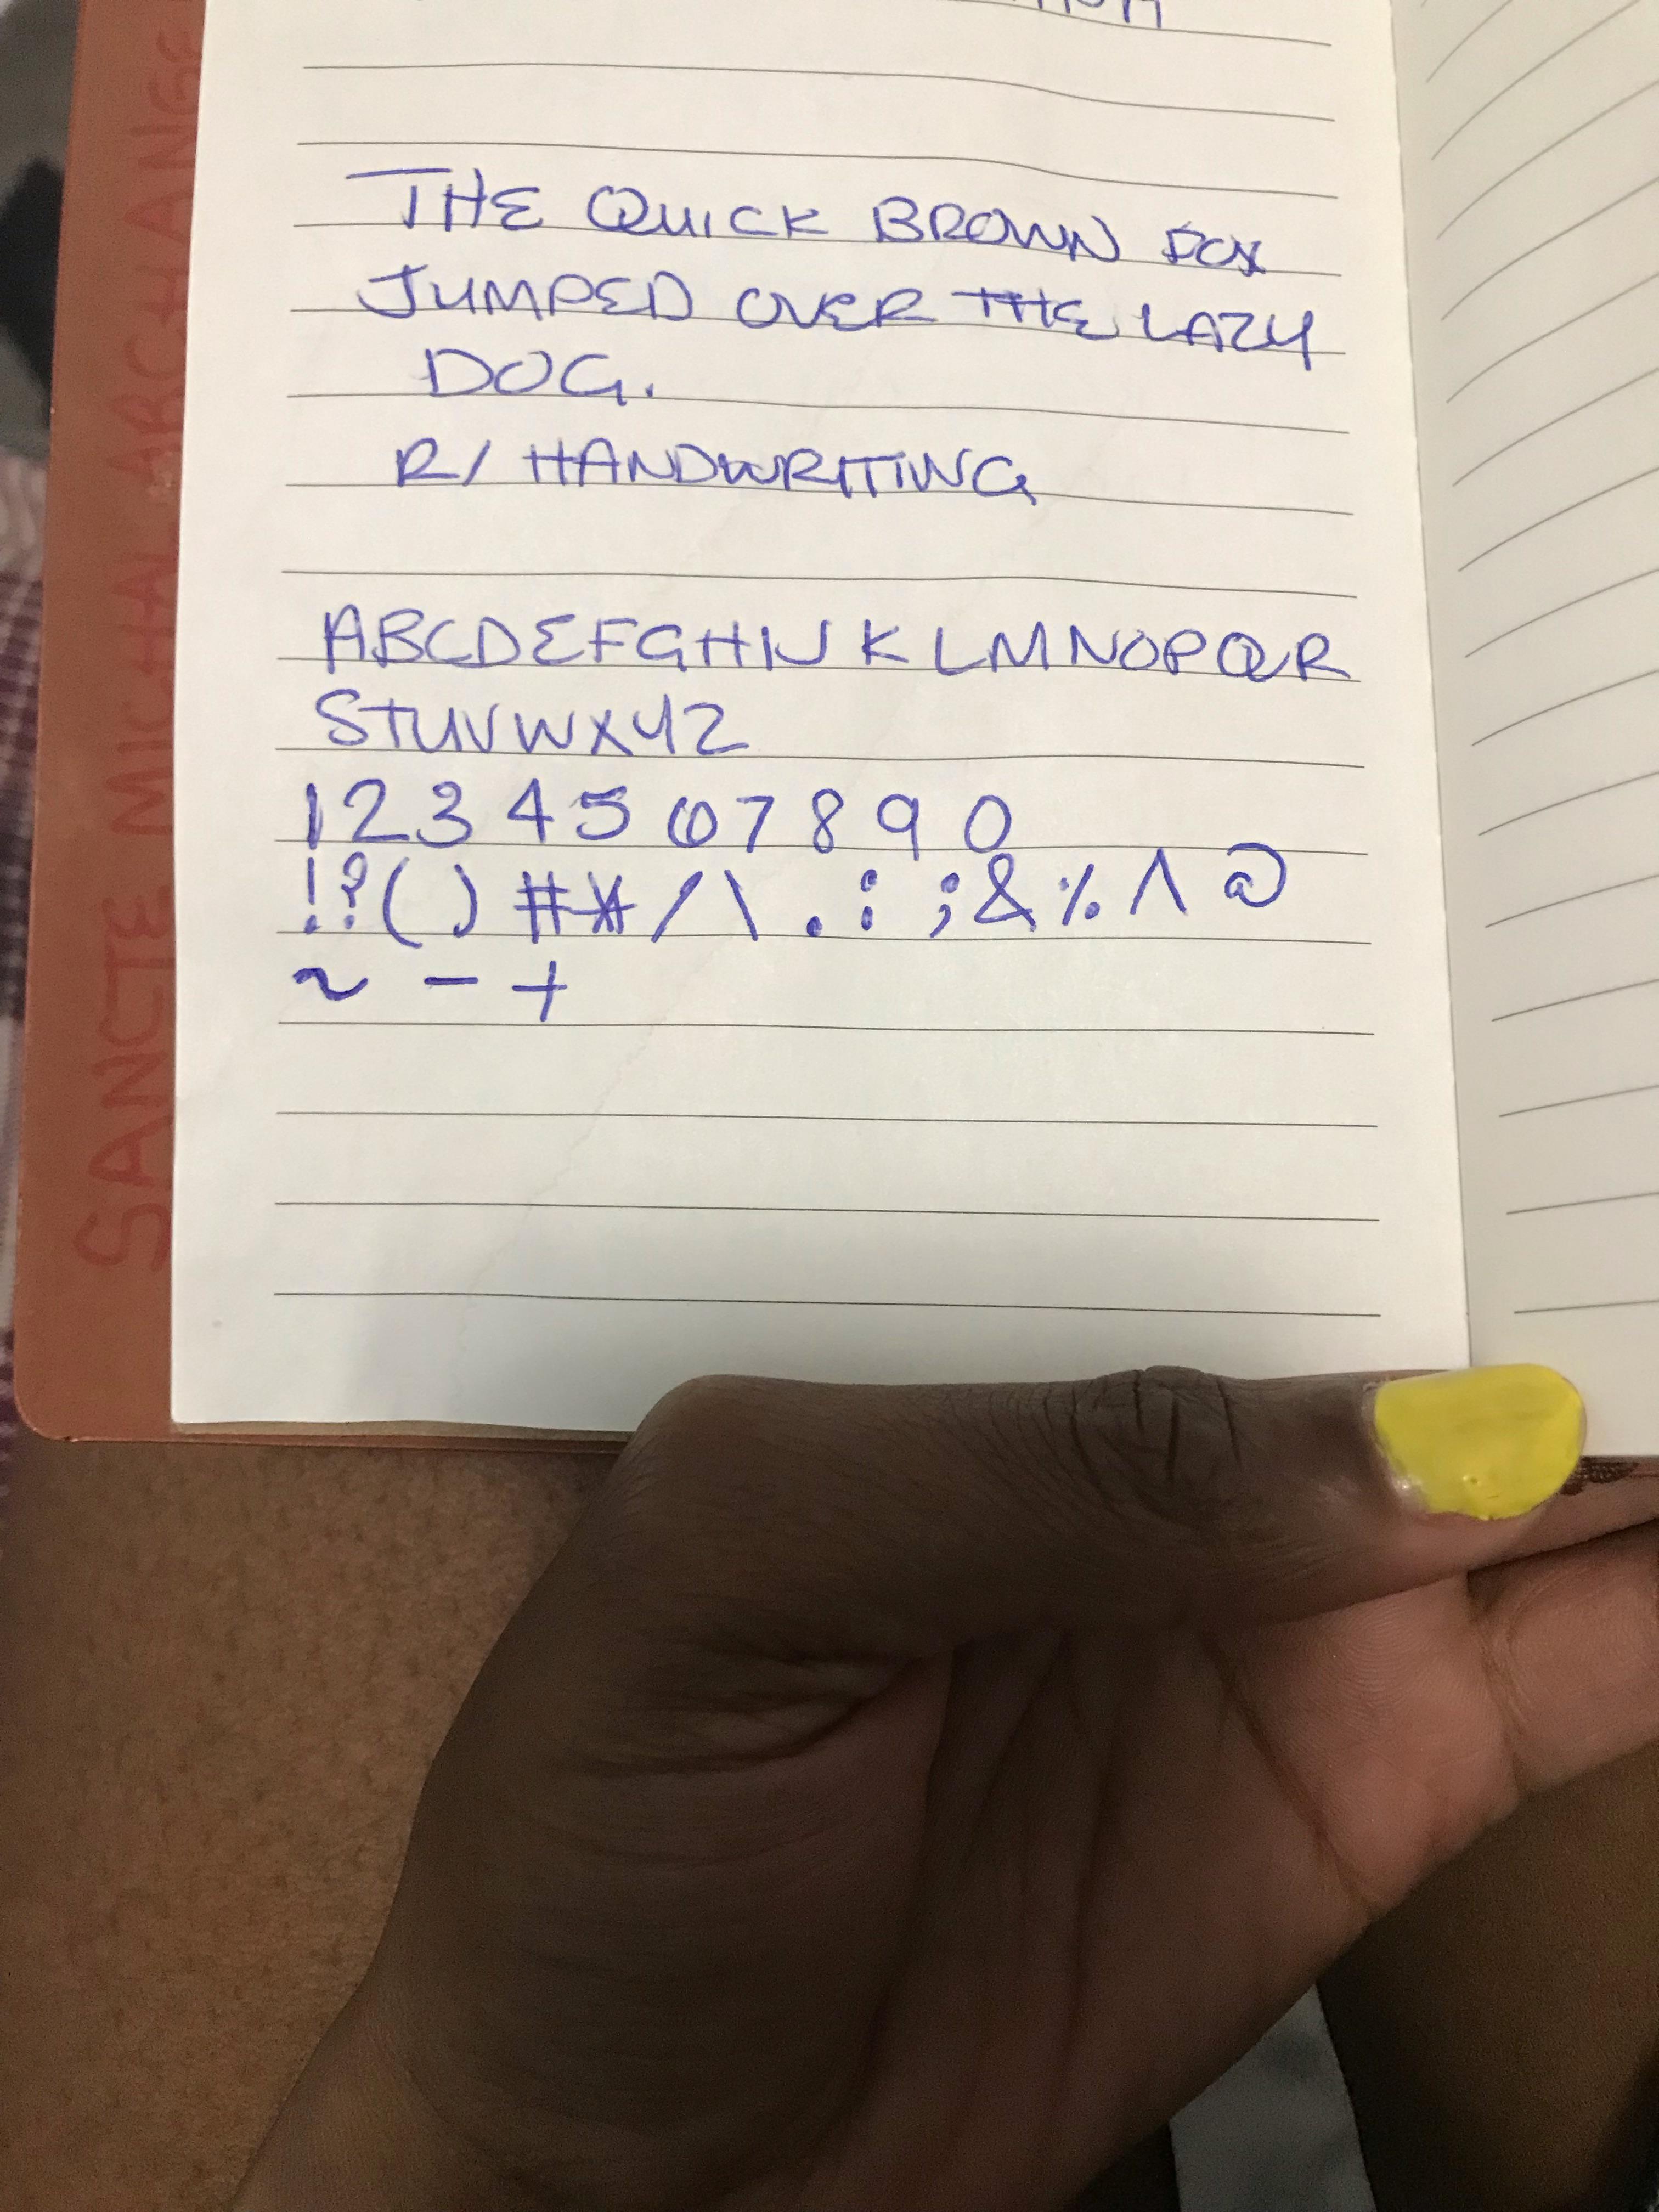 THE QUICK BROWN FOX
JUMPED OVER THE LAZY
DOG.
R/ HANDWRITING
ABCDEFGHIJKLMNOPQR
STUVWXYZ
1 2 3 4 5 6 7 8 9 0
! ? ( ) # * / \ . : ; & % ^ @
~ - +
SANCTE MICHAL ARCHANGE